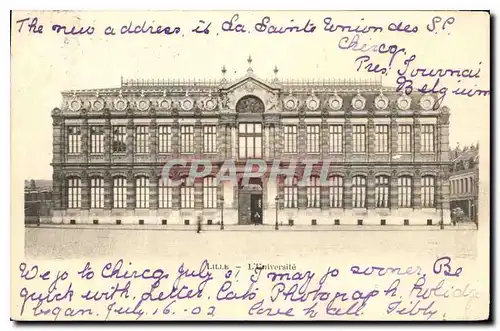 The new address, is La Sainte Union des S.C.
Chercq,
Près Tournai
Belgium
CPARAMA
LILLE - L'Université
We go to Chercq July 31 I may go sooner. Be
quick with Letter. Cab. Photograph. Holidays
began July 16.02 Love to all.